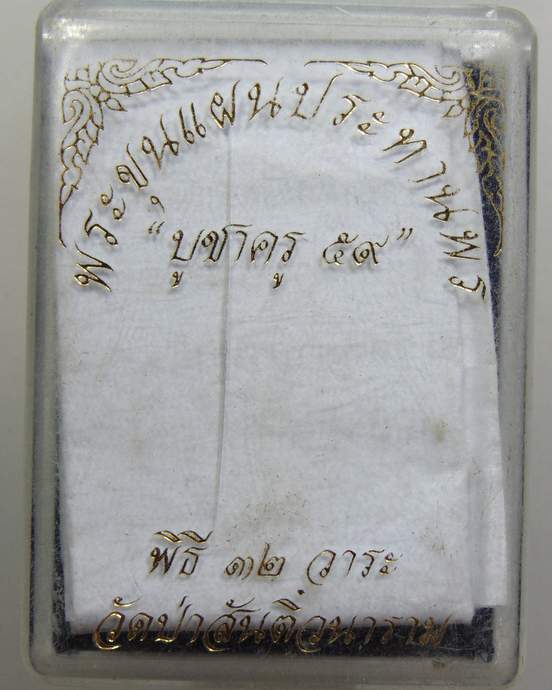 พระขุนแผนประทานพร
"บูชาครู ๕๙"
พิธี ๓๒ วาระ
วัดป่าสันติ์วนาราม